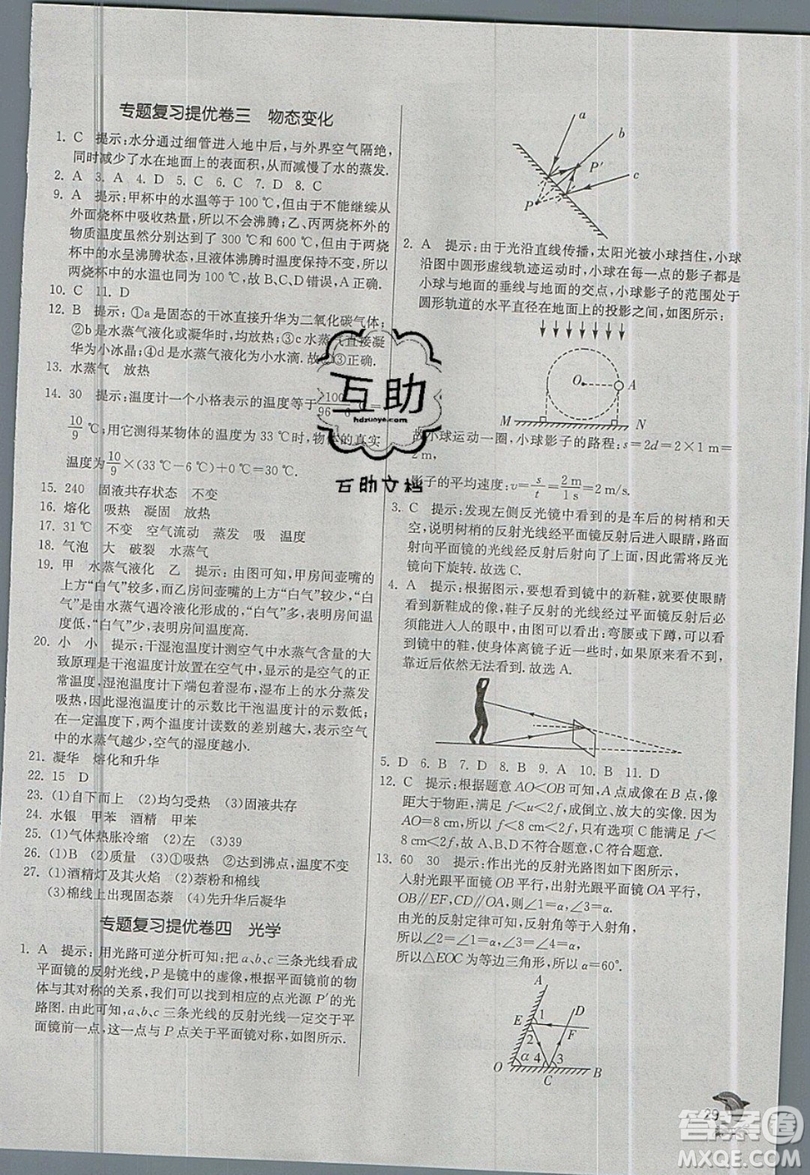 专题复习提优卷三 物态变化
1. C 提示：水分通过细管进入地中后，与外界空气隔绝，
同时减少了水在地面上的表面积，从而减慢了水的蒸发.
2. A 3. A 4. D 5. C 6. C 7. D 8. C
9. A 提示：甲杯中的水温等于100 ℃，但由于不能继续从
外面烧杯中吸收热量，所以不会沸腾；乙、丙两烧杯外的
物质温度虽然分别达到了300 ℃和600 ℃，但由于两烧
杯的水呈沸腾状态，且液体沸腾时温度保持不变，所以
两烧杯中的水温也是100 ℃，故B、C、D错误，A正确.
10. C 11. D
12. B 提示：①a是固态的干冰直接升华为二氧化碳气体；
②b是水蒸气液化或凝华时，均放热；③c水蒸气直接凝
华为小冰晶；④d是水蒸气液化为小水滴.
③正确.
13. 水蒸气 放热
14. 30 提示：温度计一个小格表示的温度等于
10/9 ℃；用它测得某物体的温度为33 ℃时，物体的真实
温度为10/9×(33 ℃－6 ℃)＋0 ℃＝30 ℃.
15. 240 固液共存状态 不变
16. 熔化 吸热 凝固 放热
17. 31 ℃ 不变 空气流动 蒸发 吸 温度
18. 气泡 大 破裂 水蒸气
19. 甲 水蒸气液化 乙 提示：由图可知，甲房间壶嘴的
上方“白气”较多，而乙房间壶嘴的“白气”较少，由于“白
气”是由水蒸气遇冷液化形成的，“白气”多，表明房间温
度低，“白气”少，表明房间温度高.
20. 小 小 提示：干湿泡温度计测空气中水蒸气含量的大
致原理是干泡温度计放置在空气中，显示的是空气的正
常温度，湿泡温度计下端包着湿布，湿布上的水分蒸发
吸热，因此湿泡温度计的示数比干泡温度计的示数低；
在一定温度下，两个温度计读数的差别越大，表示空气
中的水蒸气越少，空气的湿度越小.
21. 凝华 熔化和升华
22. 15 D
23. (1)自下而上 (2)均匀受热 (3)固液共存
24. 水银 甲苯 酒精 甲苯
25. (1)气体热胀冷缩 (2)左 (3)39
26. (1)B (2)质量 (3)①吸热 ②达到沸点，温度不变
27. (1)酒精灯及其火焰 (2)萘粉和棉线
(3)棉线上出现固态萘 (4)先升华后凝华
专题复习提优卷四 光学
1. A 提示：用光路可逆分析可知：把a、b、c三条光线看成
平面镜的反射光线，P是镜中的虚像，根据平面镜前的物
体与其对称的关系，我们可以找到相应的点光源P′的光
路图. 由此可知，a、b、c三条光线的反射光线一定交于平
面镜前一点，这一点与P点关于平面镜对称，如图所示.
a
b
P′
c
P
2. A 提示：由于光沿直线传播，太阳光被小球挡住，小球
沿图中圆形虚线轨迹运动时，小球在每一点的影子都是
与地面的垂线与地面的交点，小球影子的范围处于
圆形轨道的水平直径在地面上的投影之间，如图所示：
O A
M N
故小球运动一圈，小球影子的路程：s＝2d＝2×1 m＝
2 m，
影子的平均速度：v＝s/t＝2 m/1 s＝2 m/s.
3. C 提示：发现左侧反光镜中看到的是车后的树梢和天
空，说明树梢的反射光线经平面镜反射后进入眼睛，路面
反射的光线经反射后射向了上面，因此，需要将反光
镜向下旋转. 故选C.
4. A 提示：根据图示，要想看到镜中的新鞋，就要使眼睛
看到新鞋成的像，鞋子反射的光线经平面镜反射后必
须能进入人的眼中，由图可以看出：弯腰或下蹲，可以看
到镜中的鞋，身体向左离镜子近一些时，如果原来看不到，
靠近后依然无法看到. 故选A.
5. D 6. B 7. D 8. B 9. A 10. A 11. B
12. C 提示：根据题意AO＜OB可知，A点成像在B点，
物距小于像距，满足f＜u＜2f，成倒立、放大的实像. 因
AO＝8 cm，所以f＜8 cm＜2f，只有选项C能满足f＜
8 cm＜2f，A、B、D不符合题意，C符合题意.
13. 60 30 提示：作出光的反射光路图如下图所示，
入射光跟平面镜OB平行，出射光跟平面镜OA平行，
OB∥EF，CD∥OA，所以∠1＝∠α，∠3＝∠α，
由光的反射定律可知，∠1＝∠2，∠3＝∠4，
所以△EOC为等边三角形，所以α＝60°.
A D
E 1 F
2
α 4 3
O C B
29
互助
hdzuoye.com
互助文档
答案圈
MXQE.COM